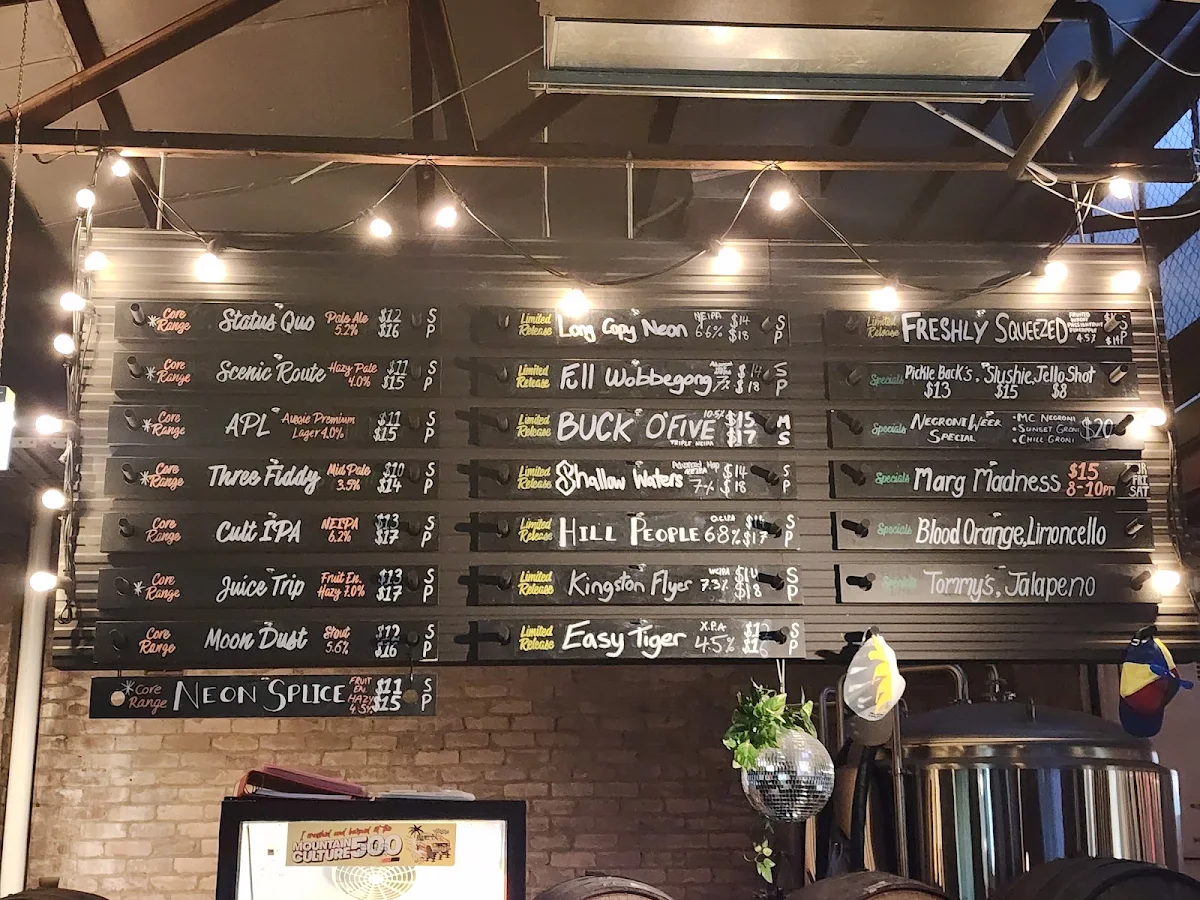 *Core Range Status Quo Pale Ale 5.2% $12 S $16 P
*Core Range Scenic Route Hazy Pale 4.0% $11 S $15 P
*Core Range APL Aussie Premium Lager 4.0% $11 S $15 P
*Core Range Three Fiddy Mid Pale 3.5% $10 S $14 P
Core Range Cult IPA NEIPA 6.2% $13 S $17 P
*Core Range Juice Trip Fruit En. Hazy 7.0% $13 S $17 P
Core Range Moon Dust Stout 5.6% $12 S $16 P
*Core Range NEON SPLICE FRUIT EN. HAZY 4.5% $11 S $15 P
Limited Release Long Copy Neon NEIPA 6.6% $14 S $18 P
Limited Release Full Wobbegong $14 S $18 P
Limited Release BUCK O'FIVE 10.5% TRIPLE NEIPA $15 M $17 S
Limited Release Shallow Waters 7% $14 S $18 P
Limited Release HILL PEOPLE 6.8% $17 S P
Limited Release Kingston Flyer WCIPA 7.3% $18 S P
Limited Release Easy Tiger X.P.A 4.5% $16 S P
Limited Release FRESHLY SQUEEZED 4.5% S P
Specials Pickle Back's, Slushie, Jello Shot
$13 $15 $8
Specials NEGRONI WEEK SPECIAL •MC NEGRONI •SUNSET GRONI •CHILL GRONI $20
Specials Marg Madness $15 8-10PM FRI SAT
Specials Blood Orange, Limoncello
Specials Tommy's, Jalapeno
MOUNTAIN CULTURE 500